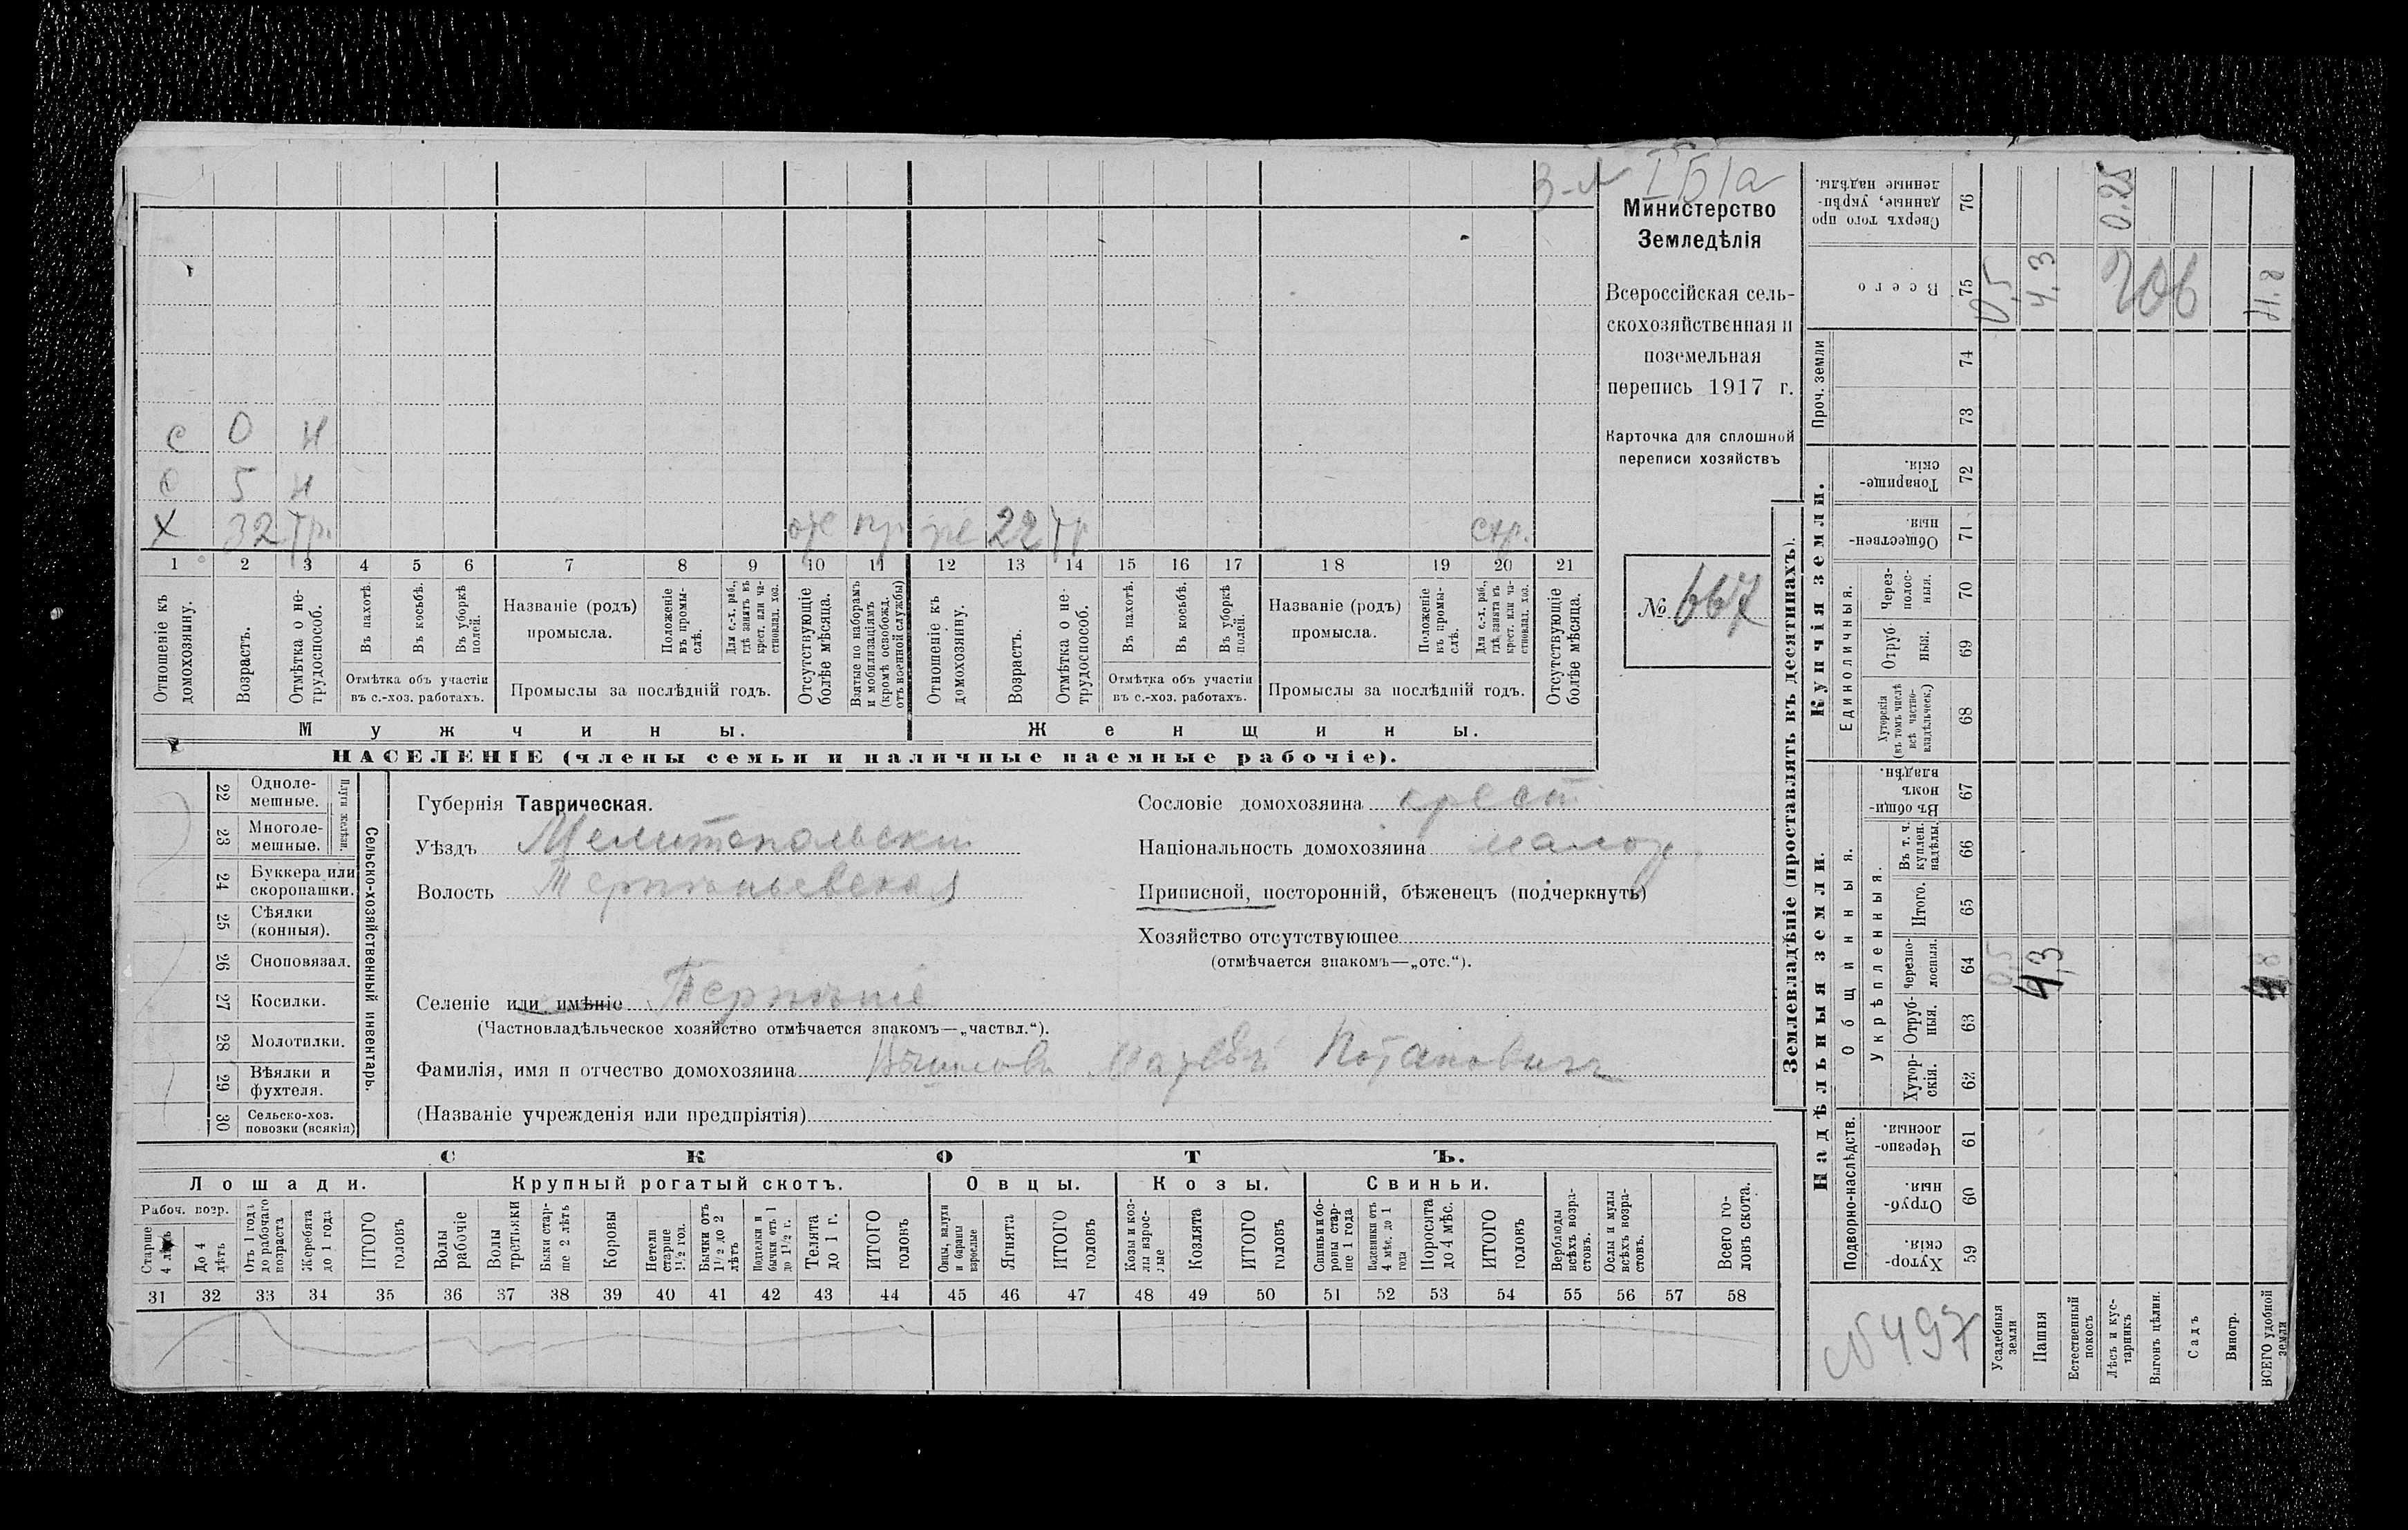 З-л I Б 1а
Министерство
Земледѣлія
Всероссійская сель-
скохозяйственная и
поземельная
перепись 1917 г.
Карточка для сплошной
переписи хозяйствъ
№ 667
с 0 н
с 5 н
х 32 тр. же 22 тр стр.
1 2 3 4 5 6 7 8 9 10 11 12 13 14 15 16 17 18 19 20 21
Отношеніе къ домохозяину.
Возрастъ.
Отмѣтка о не-трудоспособ.
Въ пахотѣ.
Въ косьбѣ.
Въ уборкѣ полей.
Отмѣтка объ участіи въ с.-хоз. работахъ.
Названіе (родъ) промысла.
Положеніе въ промы-слѣ.
Для с.-х. раб., гдѣ занятъ въ крест. или ча-стновлад. хоз.
Промыслы за послѣдній годъ.
Отсутствующіе болѣе мѣсяца.
Взятые по наборамъ и мобилизаціямъ (кромѣ освобожд. отъ военной службы)
Отношеніе къ домохозяину.
Возрастъ.
Отмѣтка о не-трудоспособ.
Въ пахотѣ.
Въ косьбѣ.
Въ уборкѣ полей.
Отмѣтка объ участіи въ с.-хоз. работахъ.
Названіе (родъ) промысла.
Положеніе въ промы-слѣ.
Для с.-х. раб., гдѣ занята въ крест. или ча-стновлад. хоз.
Промыслы за послѣдній годъ.
Отсутствующіе болѣе мѣсяца.
Мужчины. Женщины.
НАСЕЛЕНІЕ (члены семьи и наличные наемные рабочіе).
22 Одноле-мешные.
23 Многоле-мешные.
Плуги желѣзн.
24 Буккера или скоропашки.
25 Сѣялки (конныя).
26 Сноповязал.
27 Косилки.
28 Молотилки.
29 Вѣялки и фухтеля.
30 Сельско-хоз. повозки (всякія)
Сельско-хозяйственный инвентарь.
Губернія Таврическая.
Уѣздъ Мелитопольски
Волость Терпѣньевская
Селеніе или имѣніе Терпѣніе
(Частновладѣльческое хозяйство отмѣчается знакомъ—„частвл.“).
Фамилія, имя и отчество домохозяина Потаповичъ
(Названіе учрежденія или предпріятія)
Сословіе домохозяина крест
Національность домохозяина малор
Приписной, посторонній, бѣженецъ (подчеркнуть)
Хозяйство отсутствующее
(отмѣчается знакомъ—„отс.“).
СКОТЪ.
Лошади. Крупный рогатый скотъ. Овцы. Козы. Свиньи.
Рабоч. возр.
Старше 4 лѣтъ
До 4 лѣтъ
Отъ 1 года до рабочаго возраста
Жеребята до 1 года
ИТОГО головъ
Волы рабочіе
Волы третьяки
Быки стар-ше 2 лѣтъ
Коровы
Нетели старше 1½ год.
Бычки отъ 1½ до 2 лѣтъ
Подтелки и бычки отъ 1 до 1½ г.
Телята до 1 г.
ИТОГО головъ
Овцы, валухи и бараны взрослые
Ягнята
ИТОГО головъ
Козы и коз-лы взрос-лые
Козлята
ИТОГО головъ
Свиньи и бо-ровы стар-ше 1 года
Подсвинки отъ 4 мѣс. до 1 года
Поросята до 4 мѣс.
ИТОГО головъ
Верблюды всѣхъ возра-стовъ.
Ослы и мулы всѣхъ возра-стовъ.
Всего го-ловъ скота.
31 32 33 34 35 36 37 38 39 40 41 42 43 44 45 46 47 48 49 50 51 52 53 54 55 56 57 58
Землевладѣніе (проставлять въ десятинахъ).
Сверхъ того про данные, укрѣп-ленные надѣлы. 76 0.25
Всего 75 0,5 4,3
Проч. земли 74
73
Купчія земли.
Товарище-скія. 72
Обществен-ныя. 71
Единоличныя.
Через-полос-ныя. 70
Отруб-ныя. 69
Хуторскія (въ томъ числѣ всѣ частно-владѣльческ.) 68
Надѣльныя земли.
Общинныя.
Въ общи-номъ владѣн. 67
Укрѣпленныя.
Въ т. ч. куплен. надѣлы. 66
Итого. 65
Черезпо-лосныя. 64 0,5 4,3 4,8
Отруб-ныя. 63
Хутор-скія. 62
Подворно-наслѣдств.
Черезпо-лосныя. 61
Отруб-ныя. 60
Хутор-скія. 59
№497
Усадебныя земли
Пашня
Естественный покосъ
Лѣсъ и кус-тарникъ
Выгонъ цѣлин.
Садъ
Виногр.
ВСЕГО удобной земли